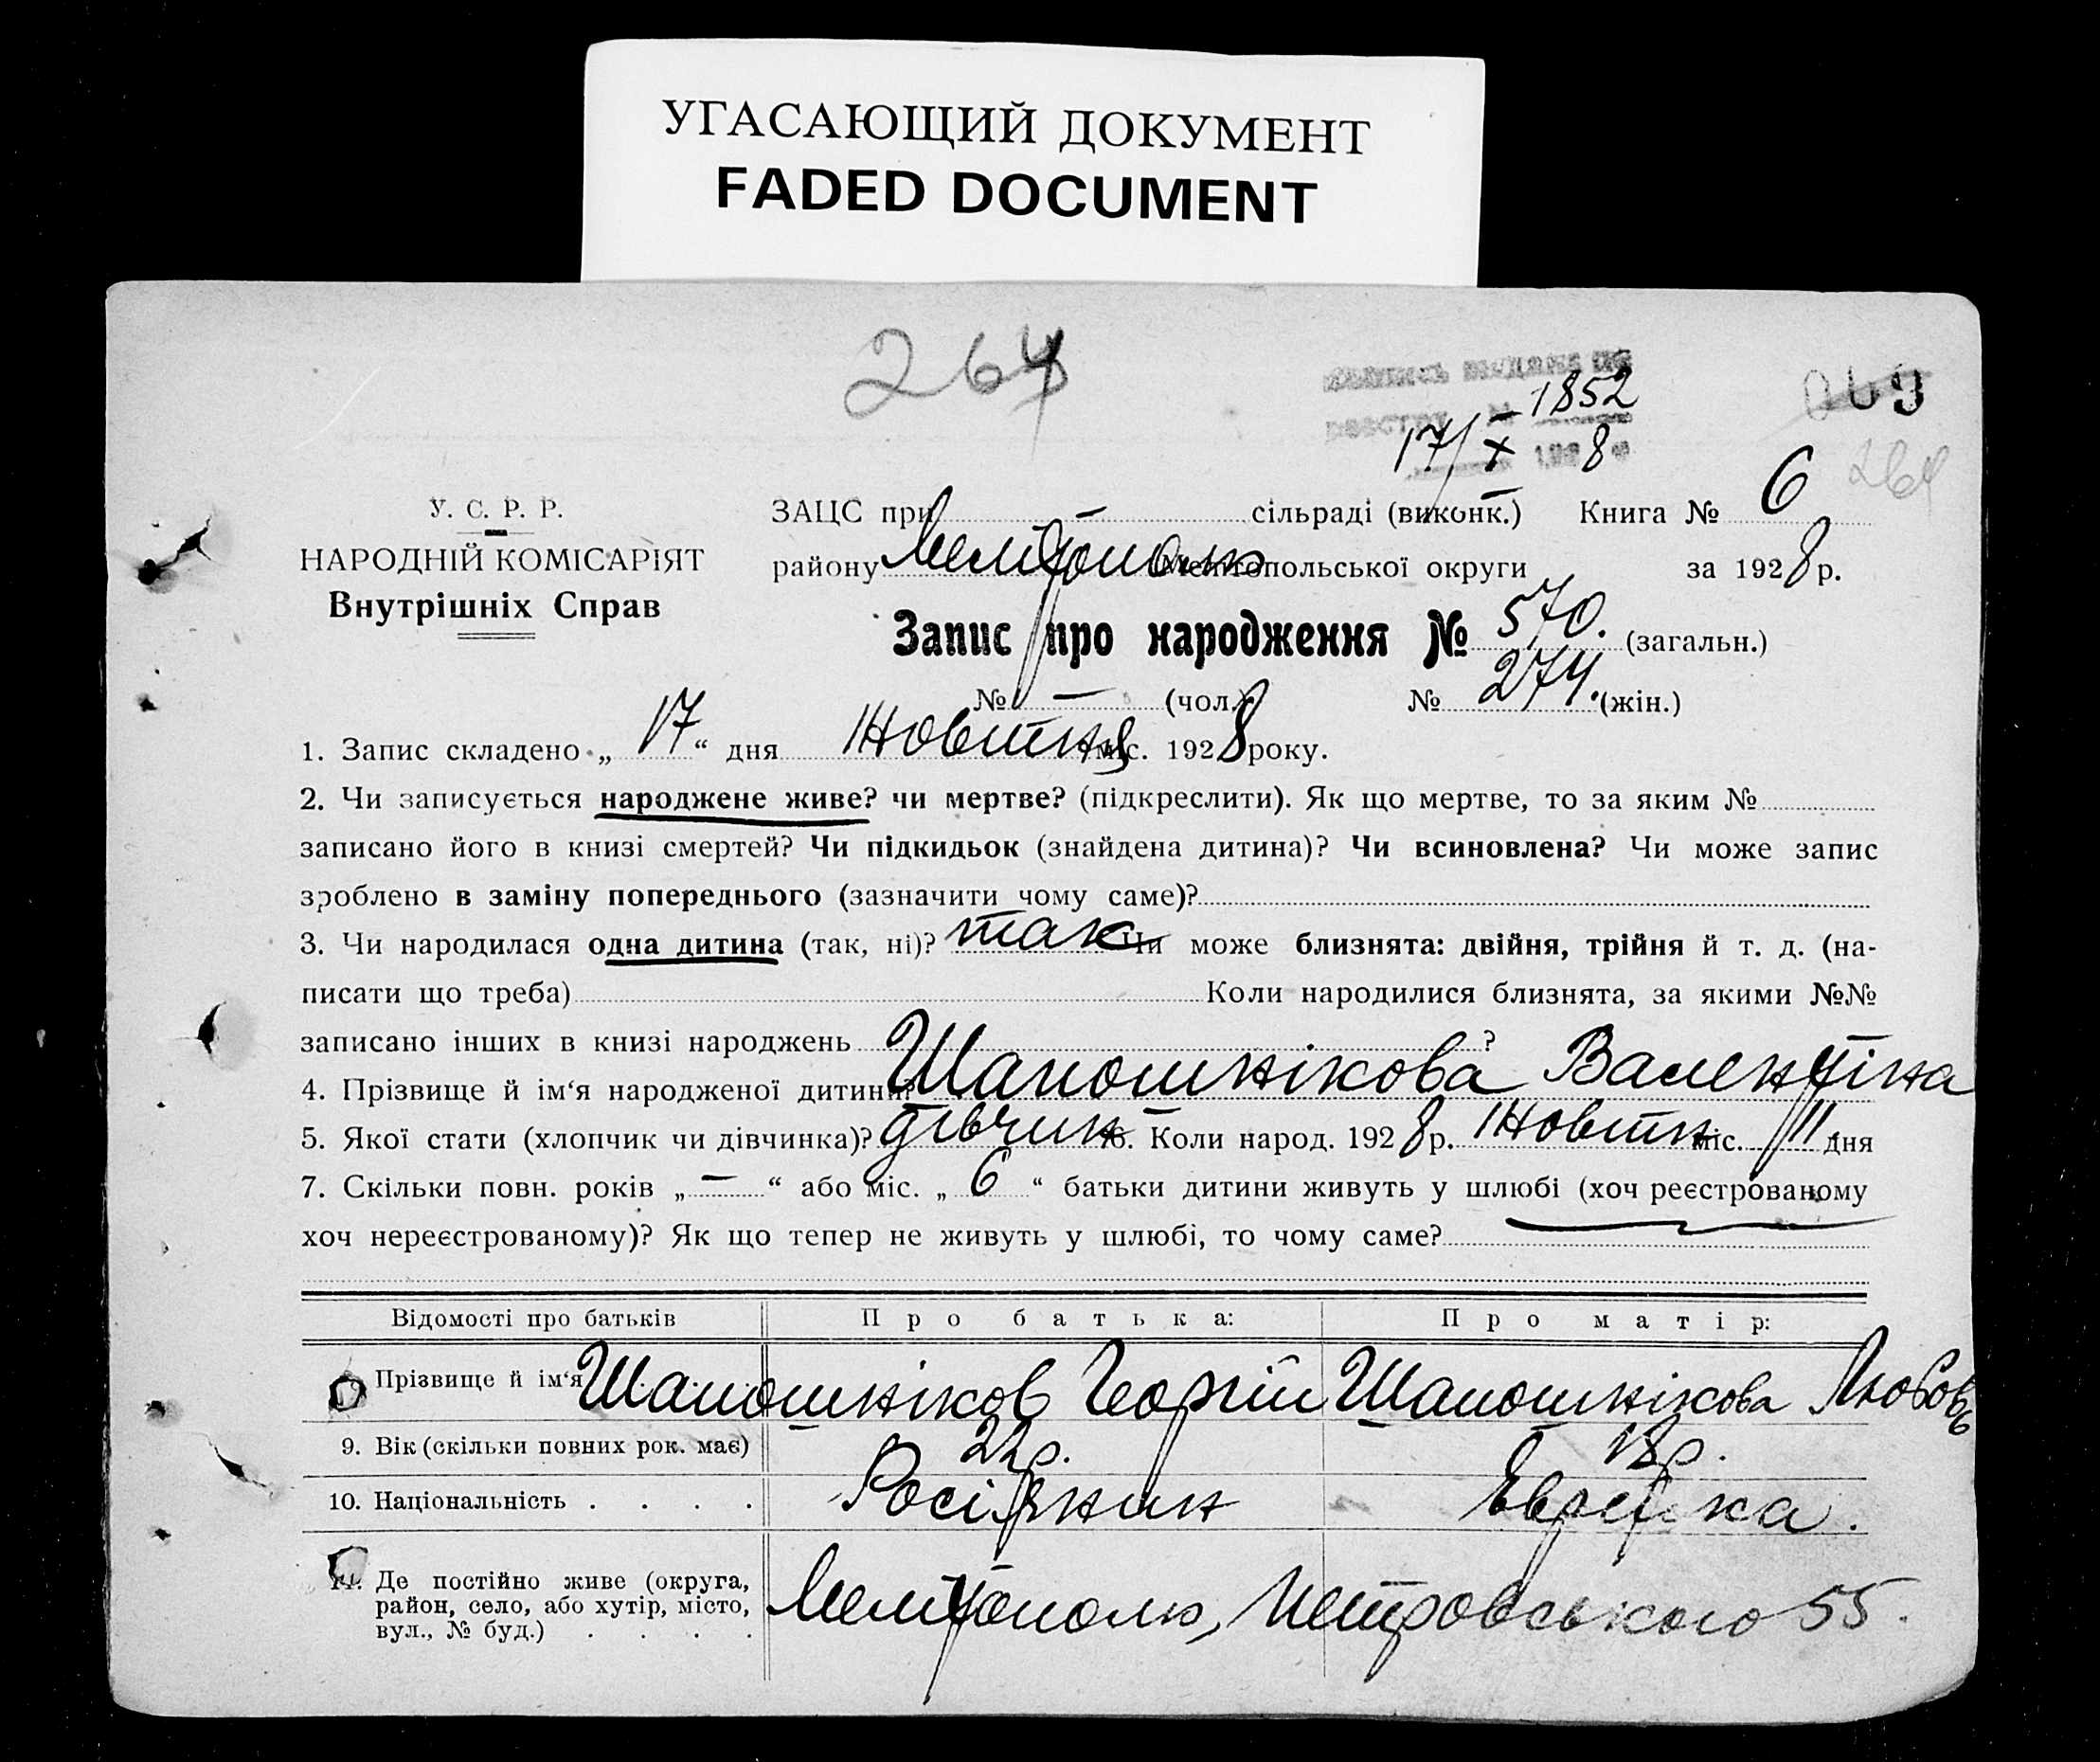 УГАСАЮЩИЙ ДОКУМЕНТ
FADED DOCUMENT
264
1852
17/X 8
У. С. Р. Р.
НАРОДНІЙ КОМІСАРІЯТ
Внутрішніх Справ
ЗАЦС при — сільраді (виконк.) Книга № 6
району Мелітополь Мелітопольської округи за 1928 р.
Запис про народження № 570. (загальн.)
№ — (чол.) № 274. (жін.)
1. Запис складено „ 17 “ дня Жовтня міс. 1928 року.
2. Чи записується народжене живе? чи мертве? (підкреслити). Як що мертве, то за яким №
записано його в книзі смертей? Чи підкидьок (знайдена дитина)? Чи всиновлена? Чи може запис
зроблено в заміну попереднього (зазначити чому саме)?
3. Чи народилася одна дитина (так, ні)? так Чи може близнята: двійня, трійня й т. д. (на-
писати що треба) Коли народилися близнята, за якими №№
записано інших в книзі народжень ?
4. Прізвище й ім‘я народженої дитини? Шапошнікова Валентіна
5. Якої стати (хлопчик чи дівчинка)? дівчин. 6. Коли народ. 1928 р. Жовтн міс. 11 дня
7. Скільки повн. років „ — “ або міс. „ 6 “ батьки дитини живуть у шлюбі (хоч реєстрованому
хоч нереєстрованому)? Як що тепер не живуть у шлюбі, то чому саме?
Відомості про батьків Про батька: Про матір:
Прізвище й ім‘я Шапошніков Георгій Шапошнікова Любовь
9. Вік (скільки повних рок. має) 22 р. 18 р.
10. Національність . . . . Росіянин Еврейка.
11. Де постійно живе (округа,
район, село, або хутір, місто,
вул., № буд.) . . . .
Мелітополь, Петровського 55.